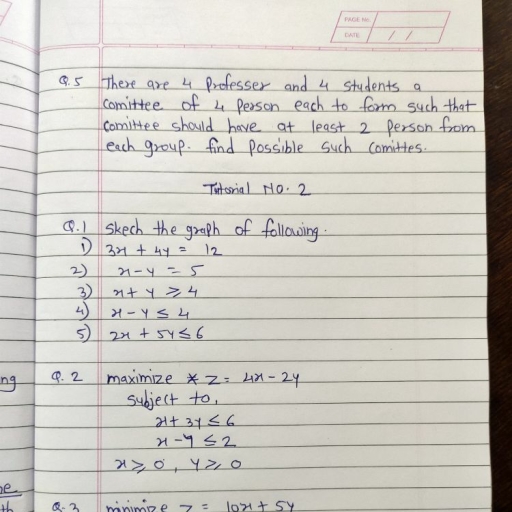 PAGE NO.
DATE / /
Q.5 There are 4 Professer and 4 students a
comittee of 4 person each to form such that
comittee should have at least 2 person from
each group. find possible such comittes.
Tutorial NO. 2
Q.1 Skech the graph of following.
1) 3x + 4y = 12
2) x - y = 5
3) x + y ≥ 4
4) x - y ≤ 4
5) 2x + 5y ≤ 6
ng
Q.2 maximize * z = 4x - 2y
subject to,
x + 3y ≤ 6
x - y ≤ 2
x ≥ 0, y ≥ 0
Q.3 minimize z = 10x + 5y